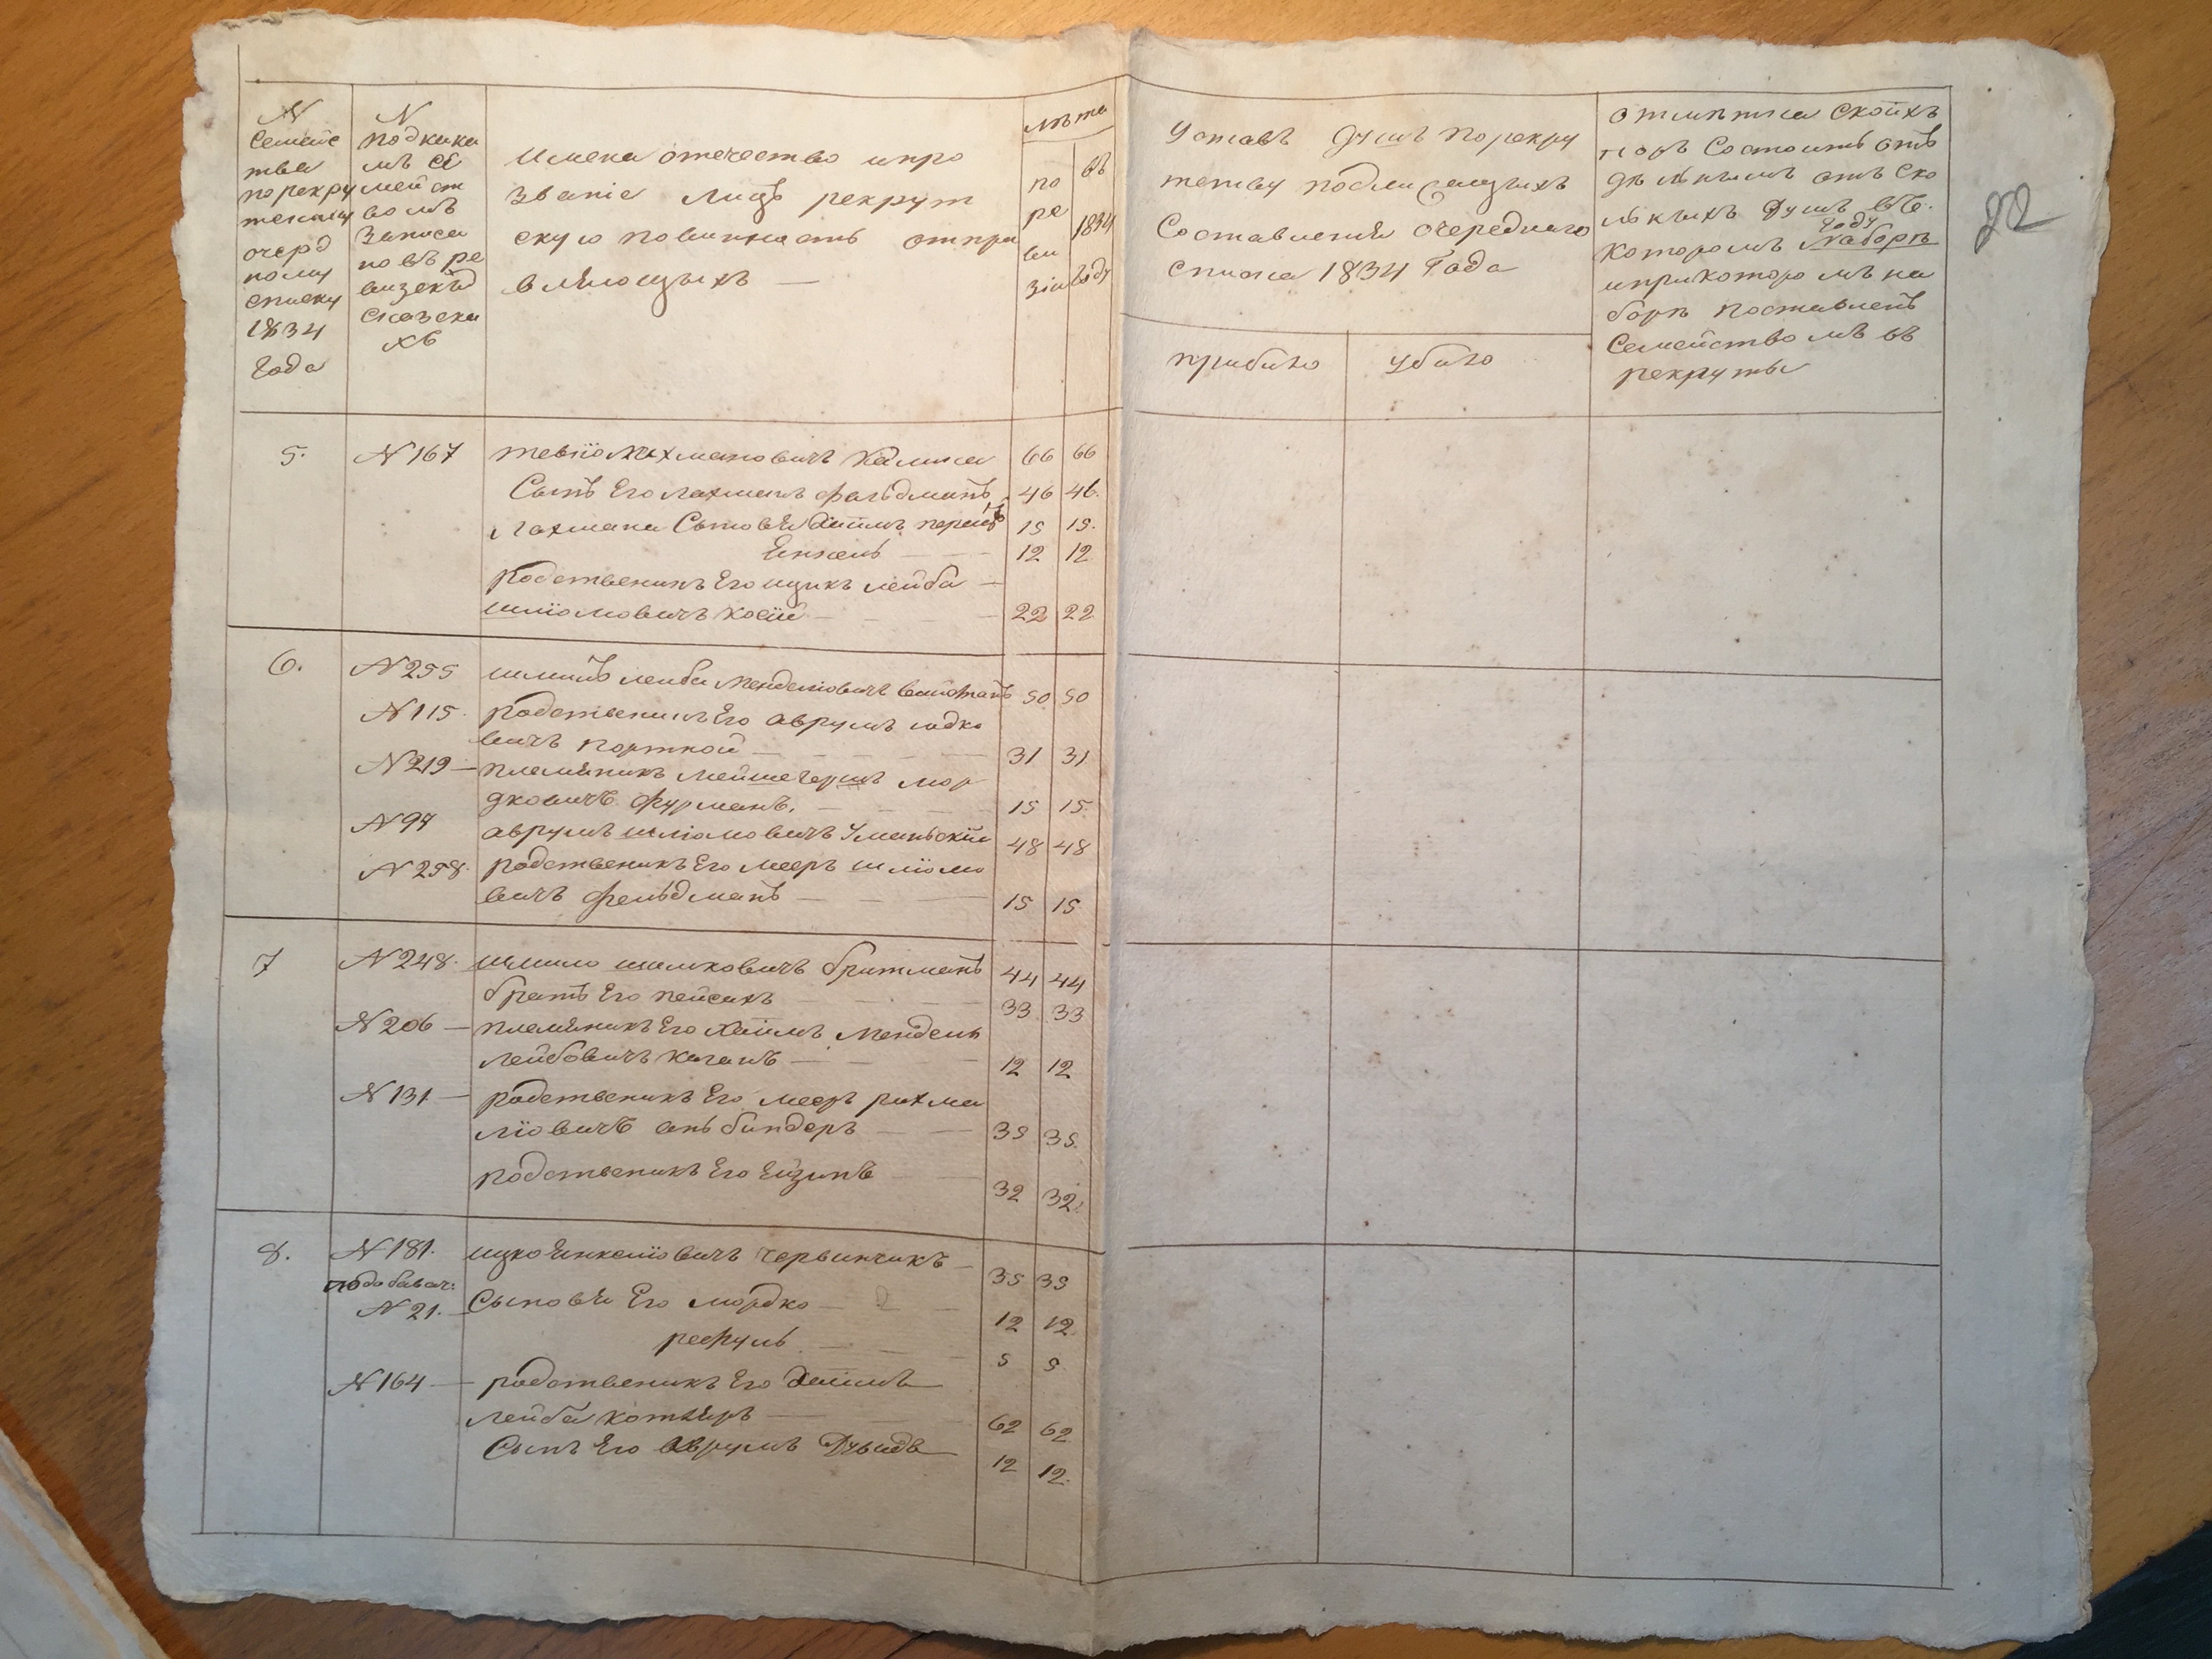 N
Семейс
тва
по рекру
тскому
очерд
ному
списку
1834
Года
N
под каки
мъ се
мейст
вомъ
Записа
но въ ре
визскъ
Сказска
хъ
Имена отечество ипро
Званіе Лицъ рекрут
скую повинность отпра
вляющыхъ —
лѣта
по
ре
ви
зіи
въ
1834
Году
Уставъ Душъ По рекру
теству
Составленія очереднаго
списка 1834 Года
прибило
убило
отмѣтка Скоихъ
поръ Состоитъ отъ
дѣльнымъ отъ Ско
лькихъ Душъ въ
Году
Которомъ Наборъ
ипри которомъ на
борѣ поставленъ
Семействомъ въ
рекруты
22
5. N 167 Тевіо Нахмановичъ Калика 66 66
Сынъ Его Нахманъ Фельдманъ 46 46.
Нахмана Сыновья Хаимъ перецъ 15 15.
Енкель — 12 12
родственикъ Его ицикъ лейба —
шліомовичъ — 22 22
6. N 255 шмиль лейба Менделіовичъ 50 50
N 115. родственикъ Его аврумъ иодко
вичъ портной — 31 31
N 219 — племяникъ мейше гершъ мор
дковичъ Фурманъ. — 15 15.
N 97 аврумъ шліомовичъ Уманьскій 48 48
N 258. родственикъ Его мееръ шліомо
вичъ Фельдманъ — 15 15
7 N 248. шмило шлиоковичъ бритманъ 44 44
братъ Его пейсахъ 33 33
N 206 — племяникъ Его Хаимъ Мендель
лейбовичъ каганъ — 12 12
N 131 — родственикъ Его мееръ рахми
ліовичъ биндеръ — 35 35.
родственикъ Его Ейзикъ 32 32.
8. N 181. ицко Янкеліовичъ Червинчикъ — 35 35
подобавоч:
N 21. — Сыновья Его мордко — 2 — 12 12
рефуль 5 5
N 164 — родственикъ Его Хаимъ
лейба котляръ — 62 62
Сынъ Его Аврумъ Дувидъ 12 12.